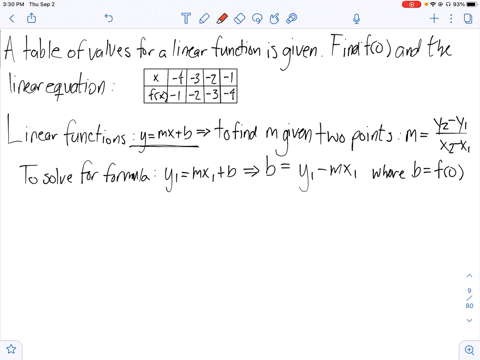 3:30 PM Thu Sep 2
93%
A table of values for a linear function is given. Find f(0) and the
linear equation:
x -4 -3 -2 -1
f(x) -1 -2 -3 -4
Linear functions: y=mx+b ⇒ to find m given two points: m = (y₂-y₁)/(x₂-x₁)
To solve for formula: y₁=mx₁+b ⇒ b = y₁-mx₁ where b=f(0)
9
/
80